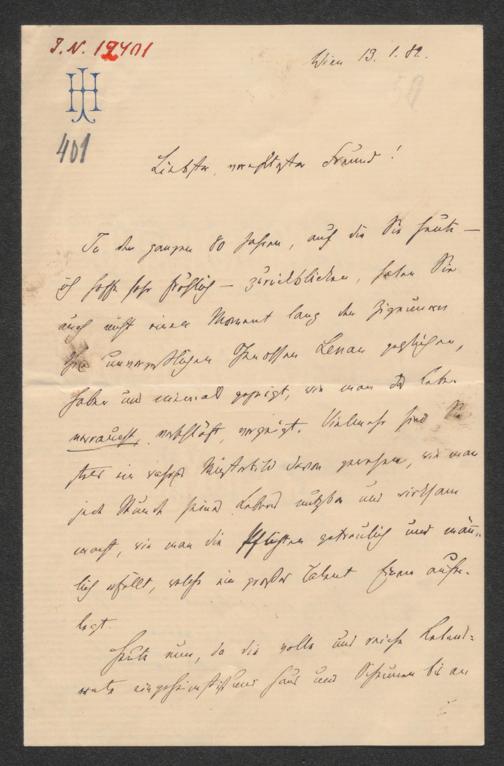 I.N. 19401
401
Wien 13. 1. 82.
Liebster, verehrtester Freund!
In den ganzen 80 Jahren, auf die Sie heute —
ich hoffe sehr fröhlich — zurückblicken, haben Sie
auch nicht einen Moment lang den Zigeunern
Ihres unvergeßlichen Genossen Lenau geglichen,
haben uns niemals gezeigt, wie man das Leben
verraucht, verschläft, vergeigt. Vielmehr sind Sie
stets ein wahres Musterbild davon gewesen, wie man
jede Stunde seines Lebens nutzbar und wirksam
macht, wie man die Pflichten getreulich und männ-
lich erfüllt, welche ein großes Talent Einem aufer-
legt.
Heute nun, da die volle und reiche Lebens-
ernte eingeheimst ist und Haus und Scheunen bis an